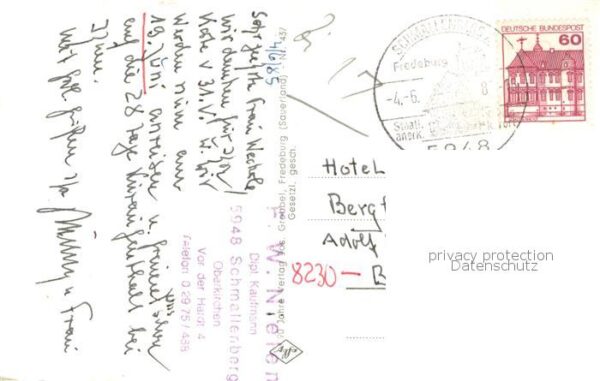 4/6/85
Sehr geehrte Frau
wir danken für Ihre
Karte v. 31.5. Wir
werden nun am
19. Juni anreisen u. freuen
uns
auf die 28 Tage Kuraufenthalt bei
Ihnen.
Mit frdl. Grüßen Ihr
u. Frau
F. W. Nielen
Dipl. Kaufmann
5948 Schmallenberg
Oberkirchen
Vor der Hardt 4
Telefon 0 29 75 / 488
Jahre Verlag Jos. Grobbel, Fredeburg (Sauerland) Nr. 437
Gesetzl. gesch.
SCHMALLENBERG
Fredeburg
-4.-6.
8
Staatl.
anerk.
5948
DEUTSCHE BUNDESPOST
60
Hotel
Berg
Adolf
8230 — B
privacy protection
Datenschutz